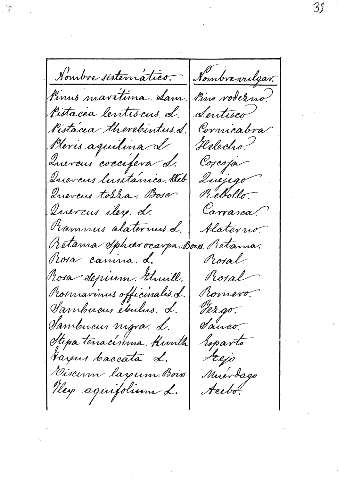 39
Nombre sistemático. Nombre vulgar.
Pinus maretima. Lam. Pino rodezno.
Pistacea lentiscus L. Lentisco
Pistácia therebintus L. Cornicabra
Pteris aquilina L Helecho.
Quercus coccifera L. Coscoja
Quercus lusitanica. Web Quejigo
Quercus tozza. Bosc Rebollo.
Quercus ilex. L. Carrasca.
Ramnus alaternus L. Alaterno.
Retama sphaerocarpa. Boiss. Retama.
Rosa canina. L. Rosal
Rosa sepium. Thuill. Rosal
Rosmarinus officinalis. L. Romero.
Sambucus ebulus. L. Yezgo.
Sambucus nigra. L. Sauco.
Stipa tenacisima. Kunth Esparto
Taxus baccata L. Tejo
Viscum laxum Boiss Muérdago
Ilex aquifolium L. Acebo.